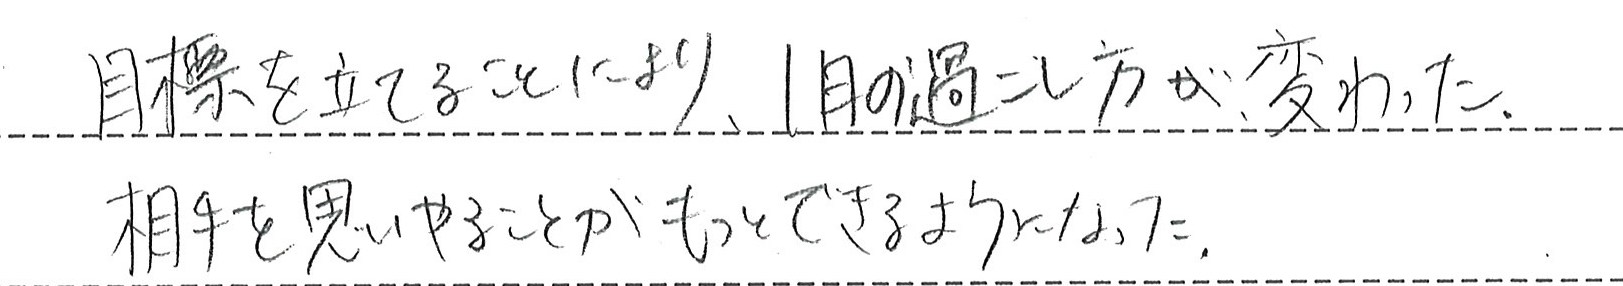 目標を立てることにより、1日の過ごし方が変わった。
相手を思いやることがもっとできるようになった。